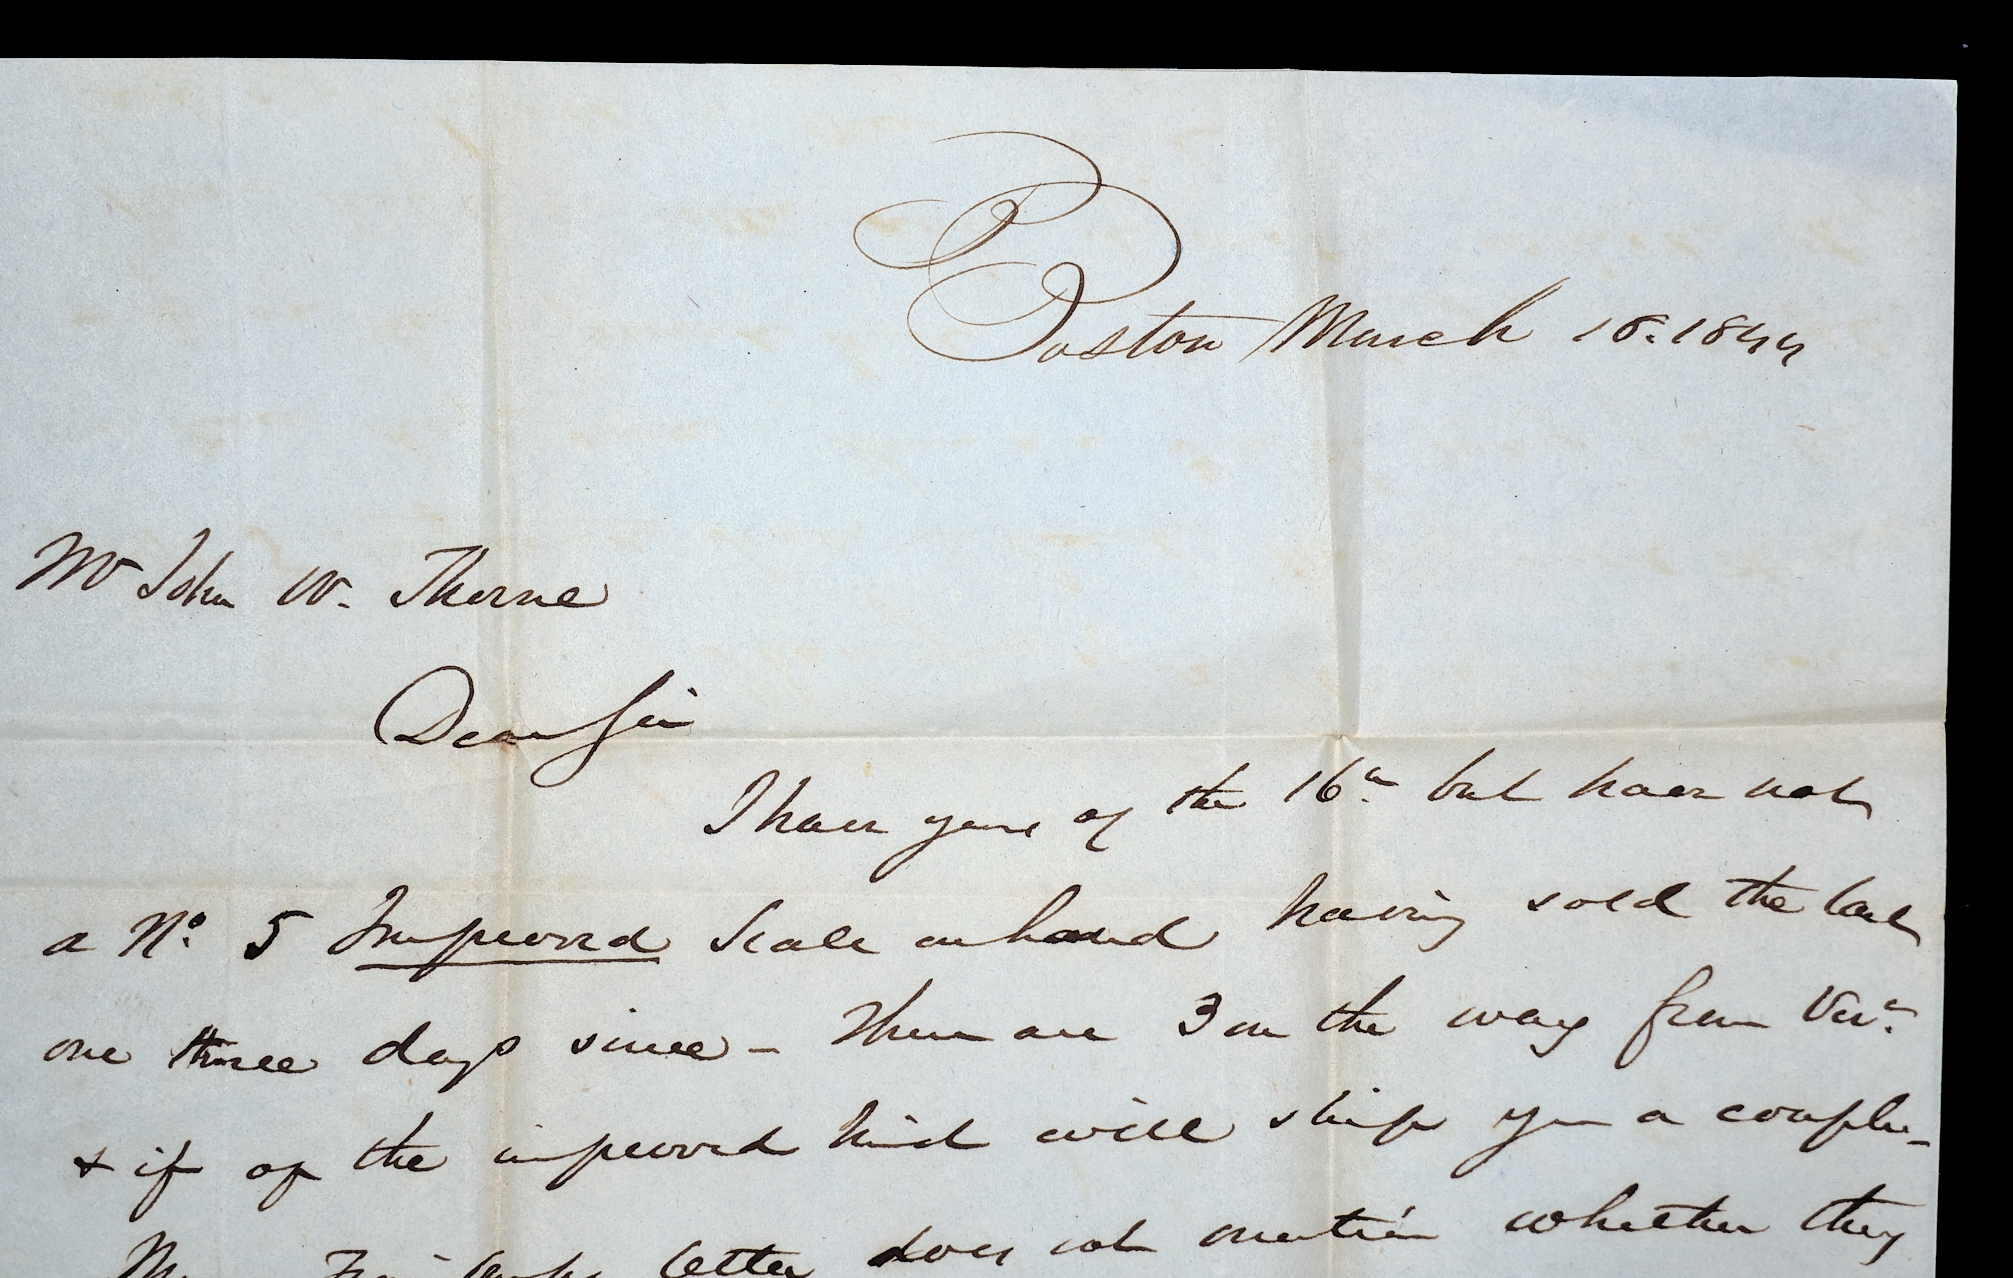 Boston March 18. 1844
Mr John W. Thorne
Dear Sir
I have yours of the 16th but have not
a No. 5 Improved Scale on hand having sold the last
one three days since - There are 3 on the way from Vert.
& if of the improved kind will ship you a couple -
Fairbanks letter does not mention whether they